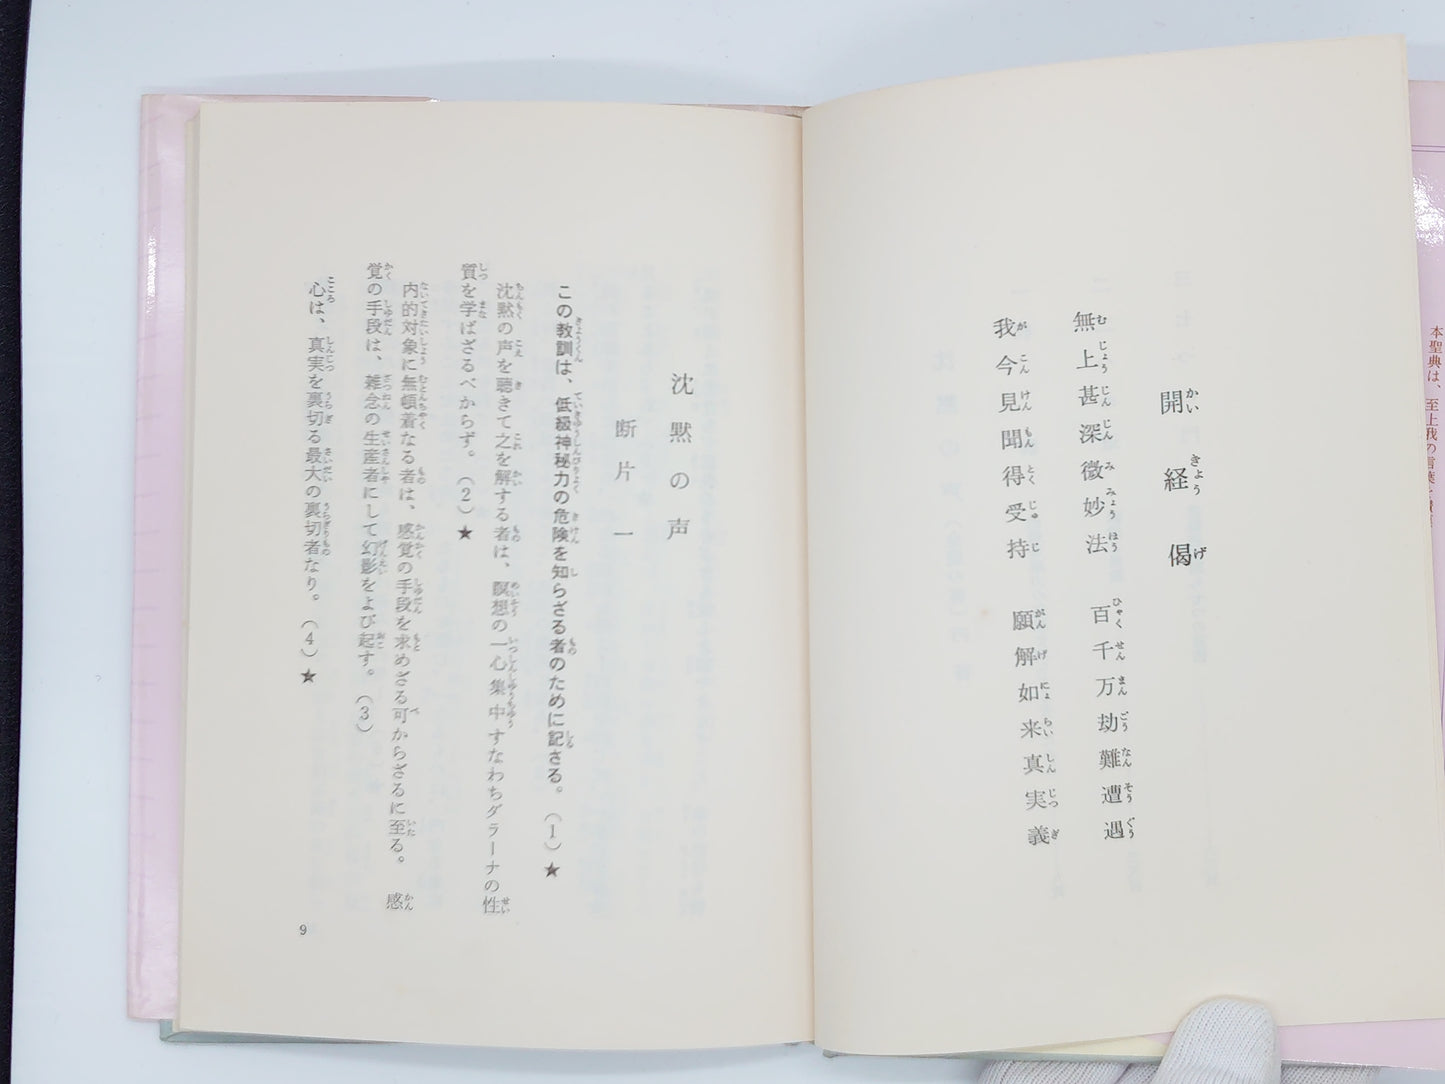 本聖典は、至上我の言葉を
開経偈
無上甚深微妙法 百千万劫難遭遇
我今見聞得受持 願解如来真実義
沈黙の声
断片一
この教訓は、低級神秘力の危険を知らざる者のために記さる。(1)★
沈黙の声を聴きて之を解する者は、瞑想の一心集中すなわちダラーナの性
質を学ばざるべからず。(2)★
内的対象に無頓着なる者は、感覚の手段を求めざる可からざるに至る。 感
覚の手段は、雑念の生産者にして幻影をよび起す。(3)
心は、真実を裏切る最大の裏切者なり。(4)★
9